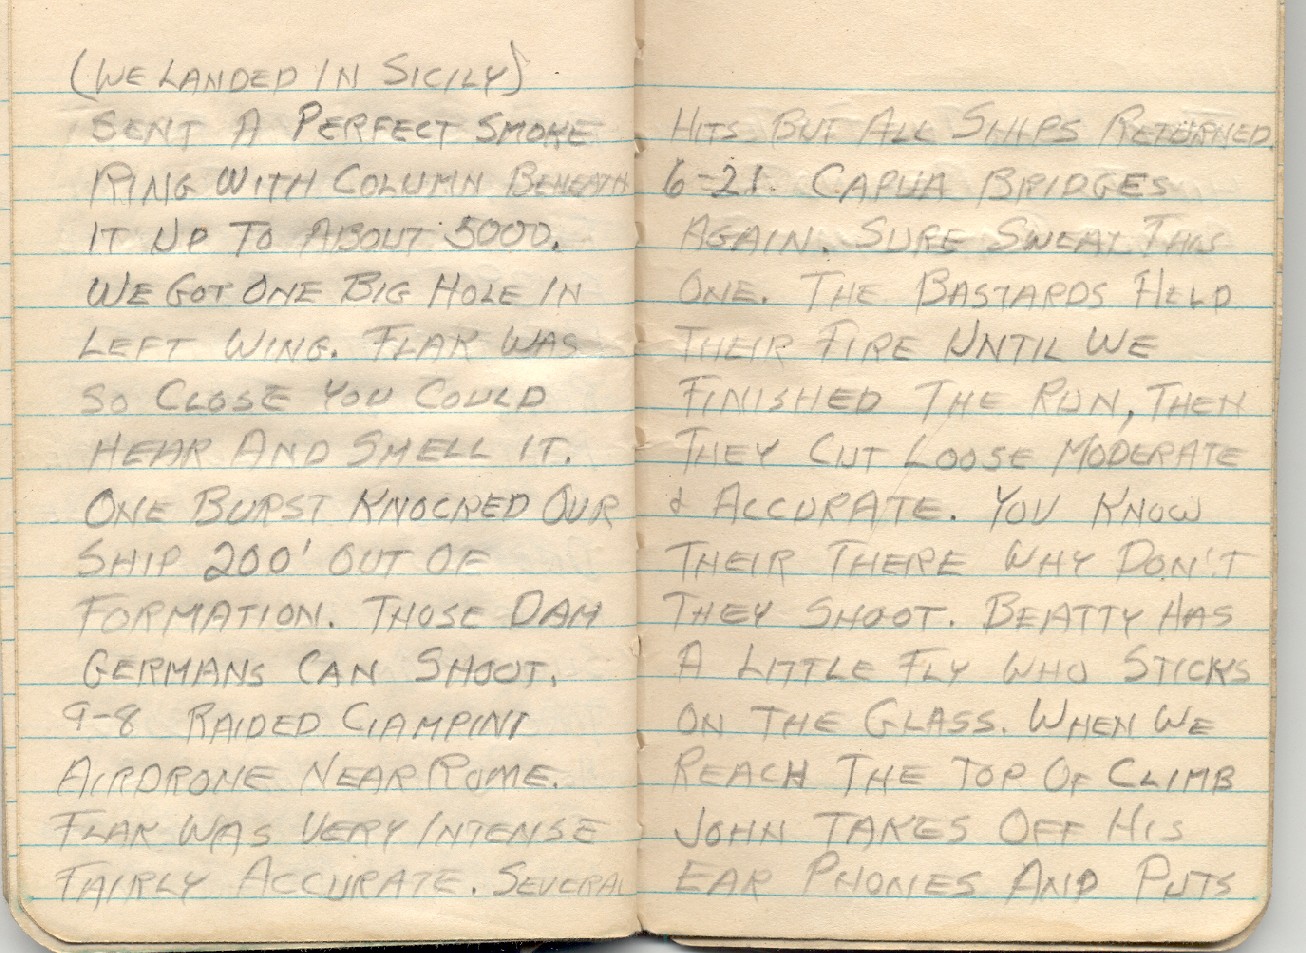 (WE LANDED IN SICILY)
SENT A PERFECT SMOKE
RING WITH COLUMN BENEATH
IT UP TO ABOUT 5000.
WE GOT ONE BIG HOLE IN
LEFT WING. FLAK WAS
SO CLOSE YOU COULD
HEAR AND SMELL IT.
ONE BURST KNOCKED OUR
SHIP 200' OUT OF
FORMATION. THOSE DAM
GERMANS CAN SHOOT.
9-8 RAIDED CIAMPINI
AIRDROME NEAR ROME.
FLAK WAS VERY INTENSE
FAIRLY ACCURATE. SEVERAL
HITS BUT ALL SHIPS RETURNED.
6-21. CAPUA BRIDGES
AGAIN. SURE SWEAT THIS
ONE. THE BASTARDS HELD
THEIR FIRE UNTIL WE
FINISHED THE RUN, THEN
THEY CUT LOOSE MODERATE
& ACCURATE. YOU KNOW
THEIR THERE WHY DON'T
THEY SHOOT. BEATTY HAS
A LITTLE FLY WHO STICKS
ON THE GLASS. WHEN WE
REACH THE TOP OF CLIMB
JOHN TAKES OFF HIS
EAR PHONES AND PUTS